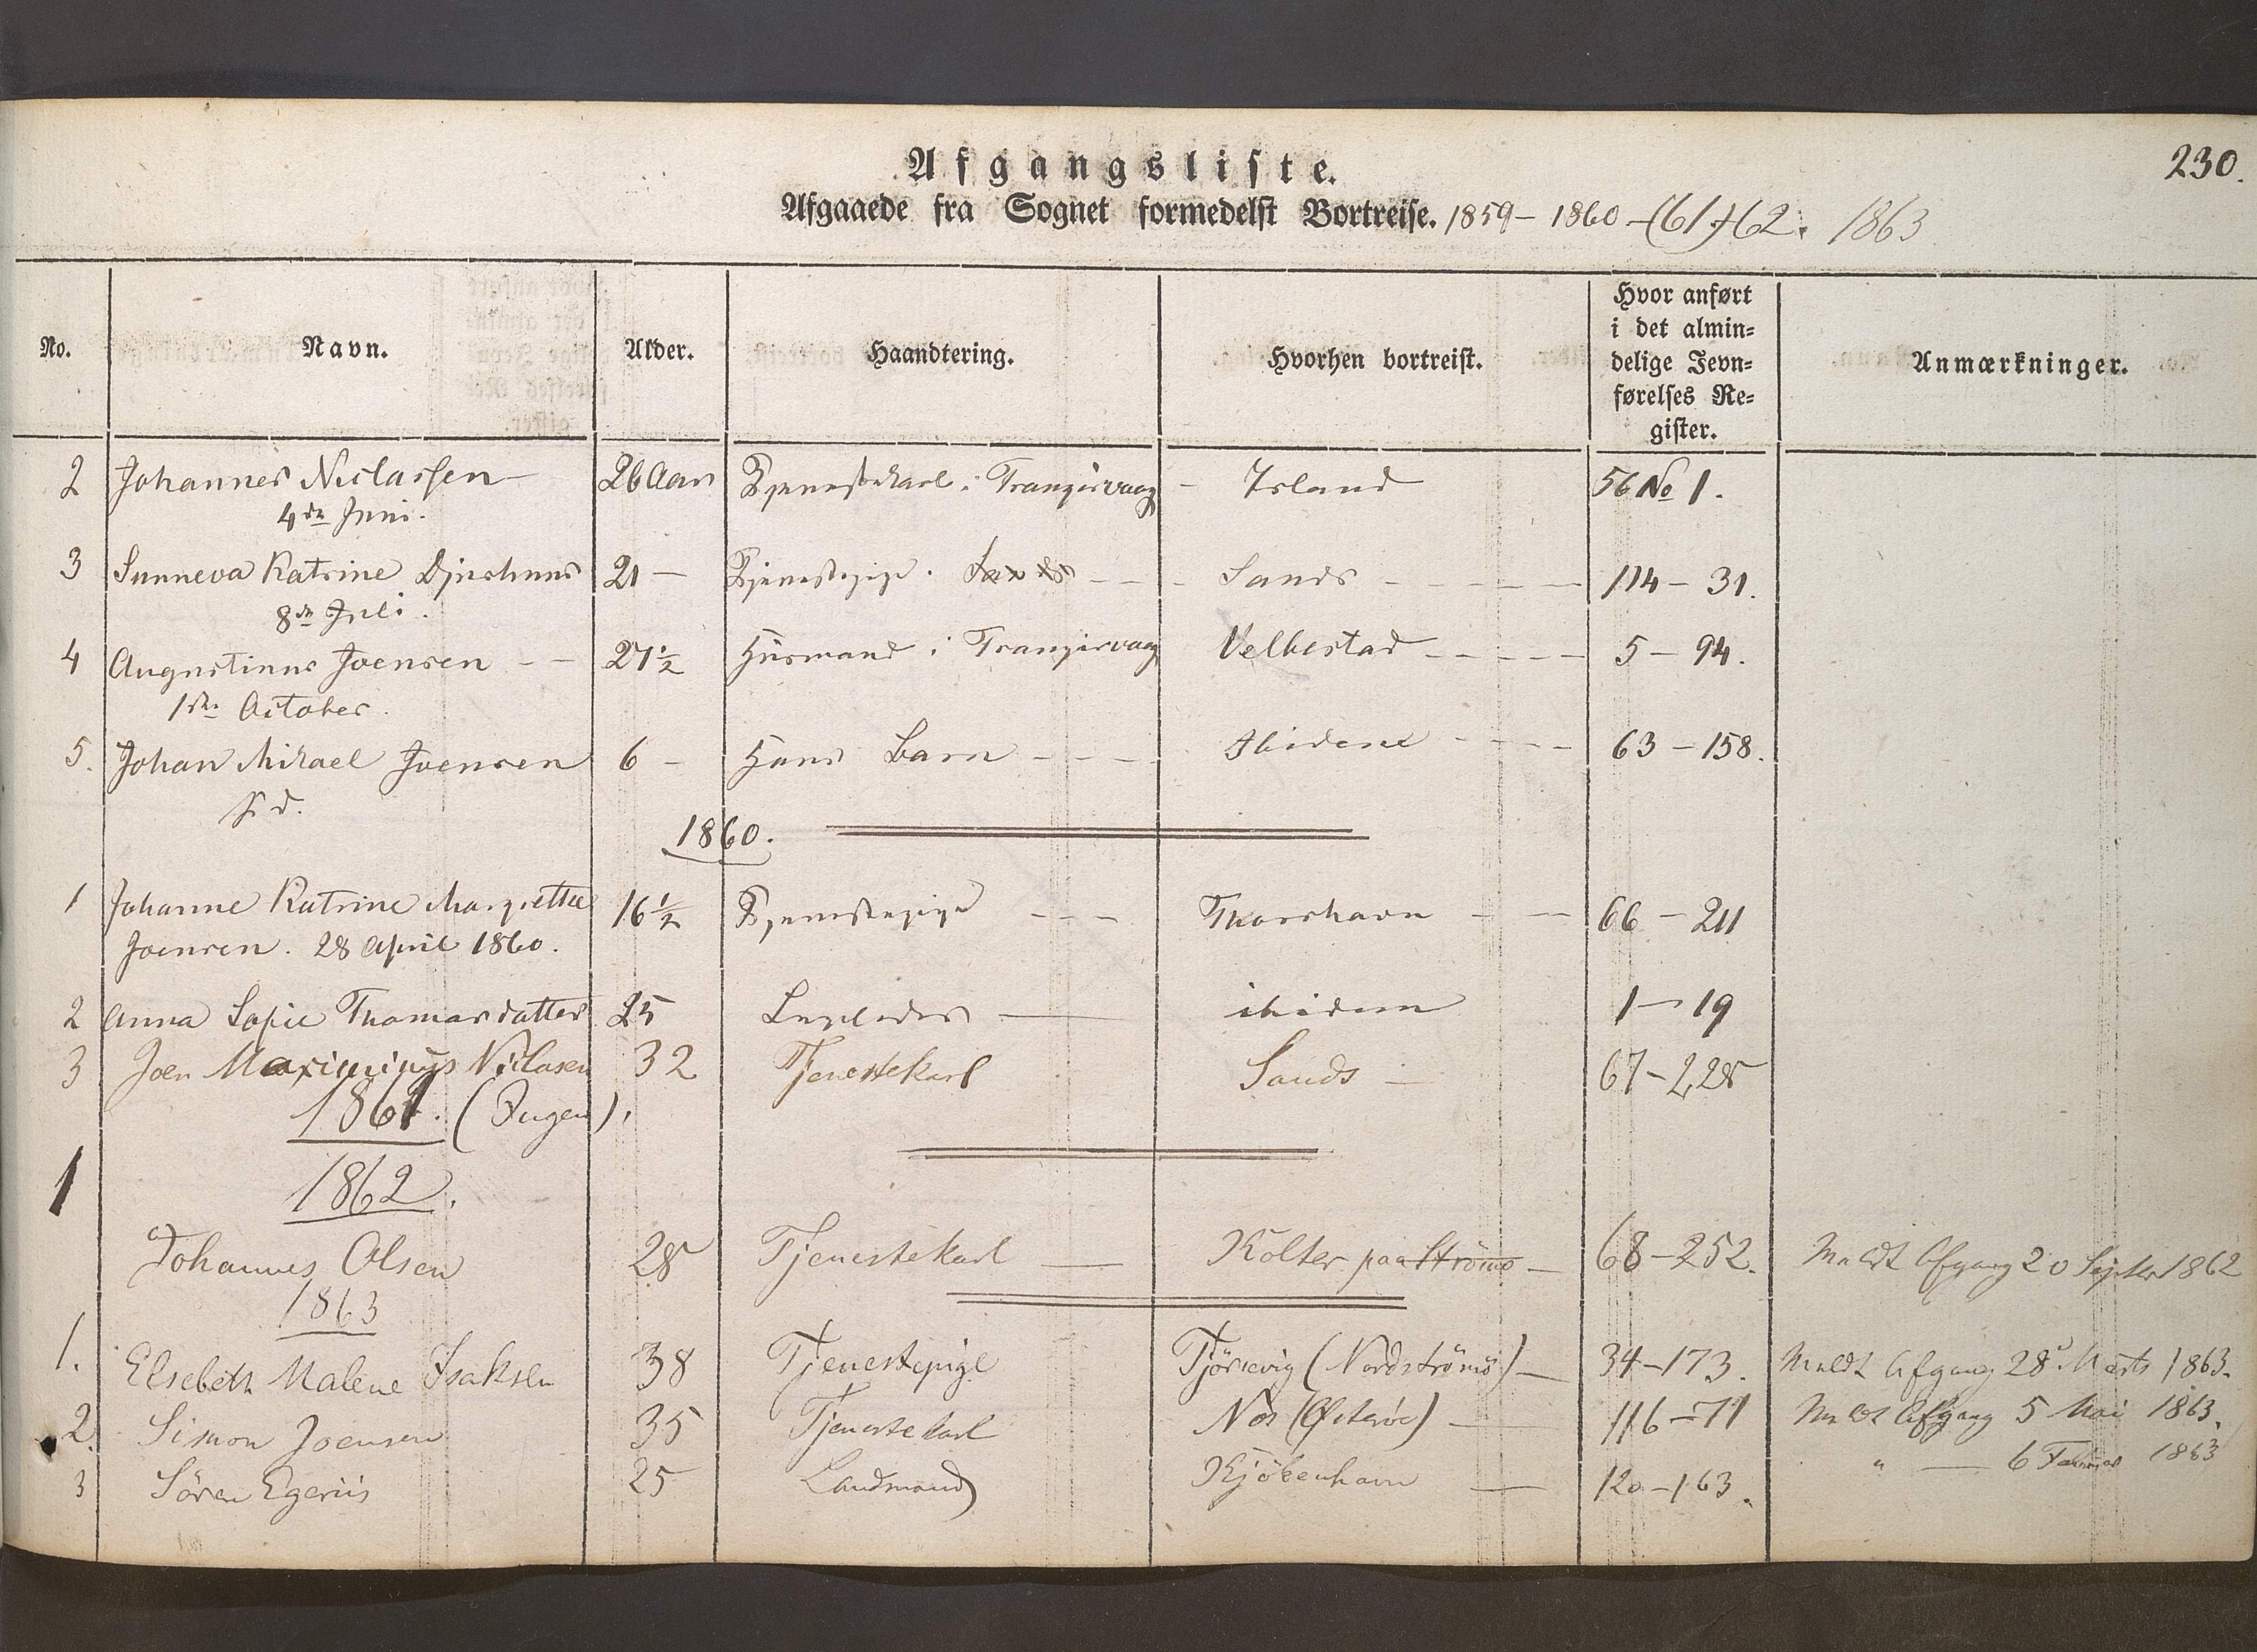 230.
Afgangsliste.
Afgaaede fra Sognet formedelst Bortreise. 1859 - 1860 - (61) + 62. 1863
No. Navn. Alder. Haandtering. Hvorhen bortreist. Hvor anført i det almin= delige Jevn= førelses Re= gister. Anmærkninger.
2 Johannes Niclassen 26 Aar Tjenestekarl i Trangisvaag - Island 56 No 1.
4de Juni.
3 Sunneva Katrine 21 - Tjenestepige - Sands - 114 - 31.
8de Juli.
4 Augustinus Joensen - 27 1/2 Husmand i Trangisvaag Velbestad - 5 - 94.
1ste October.
5. Johan Mikael Joensen 6 - Hans Barn - Ibidem - 63 - 158.
s. d.
1860.
1 Johanne Katrine Margrethe 16 1/2 Tjenestepige - Thorshavn - 66 - 211
Joensen. 28 April 1860.
2 Anna Sofie Thomasdatter 25 ibidem 1 - 19
3 Joen Maximinus Niclasen 32 Tjenestekarl Sands - 67 - 228
1861. (Ingen).
1 1862.
Johannes Olsen 28 Tjenestekarl - Kolter paa Strömö - 68 - 252. Meldt Afgang 20 Septbr 1862
1863
1. Elsebeth Malene Isaksen 38 Tjenestepige Tjörnevig (Nordströmö) - 34 - 173. Meldt Afgang 28 Marts 1863.
2. Simon Joensen 35 Tjenestekarl Nes (Østerøe) - 116 - 71 Meldt Afgang 5 Mai 1863.
3 Sören Egeriis 25 Landmand Kjöbenhavn - 120 - 163. " - 6 1863